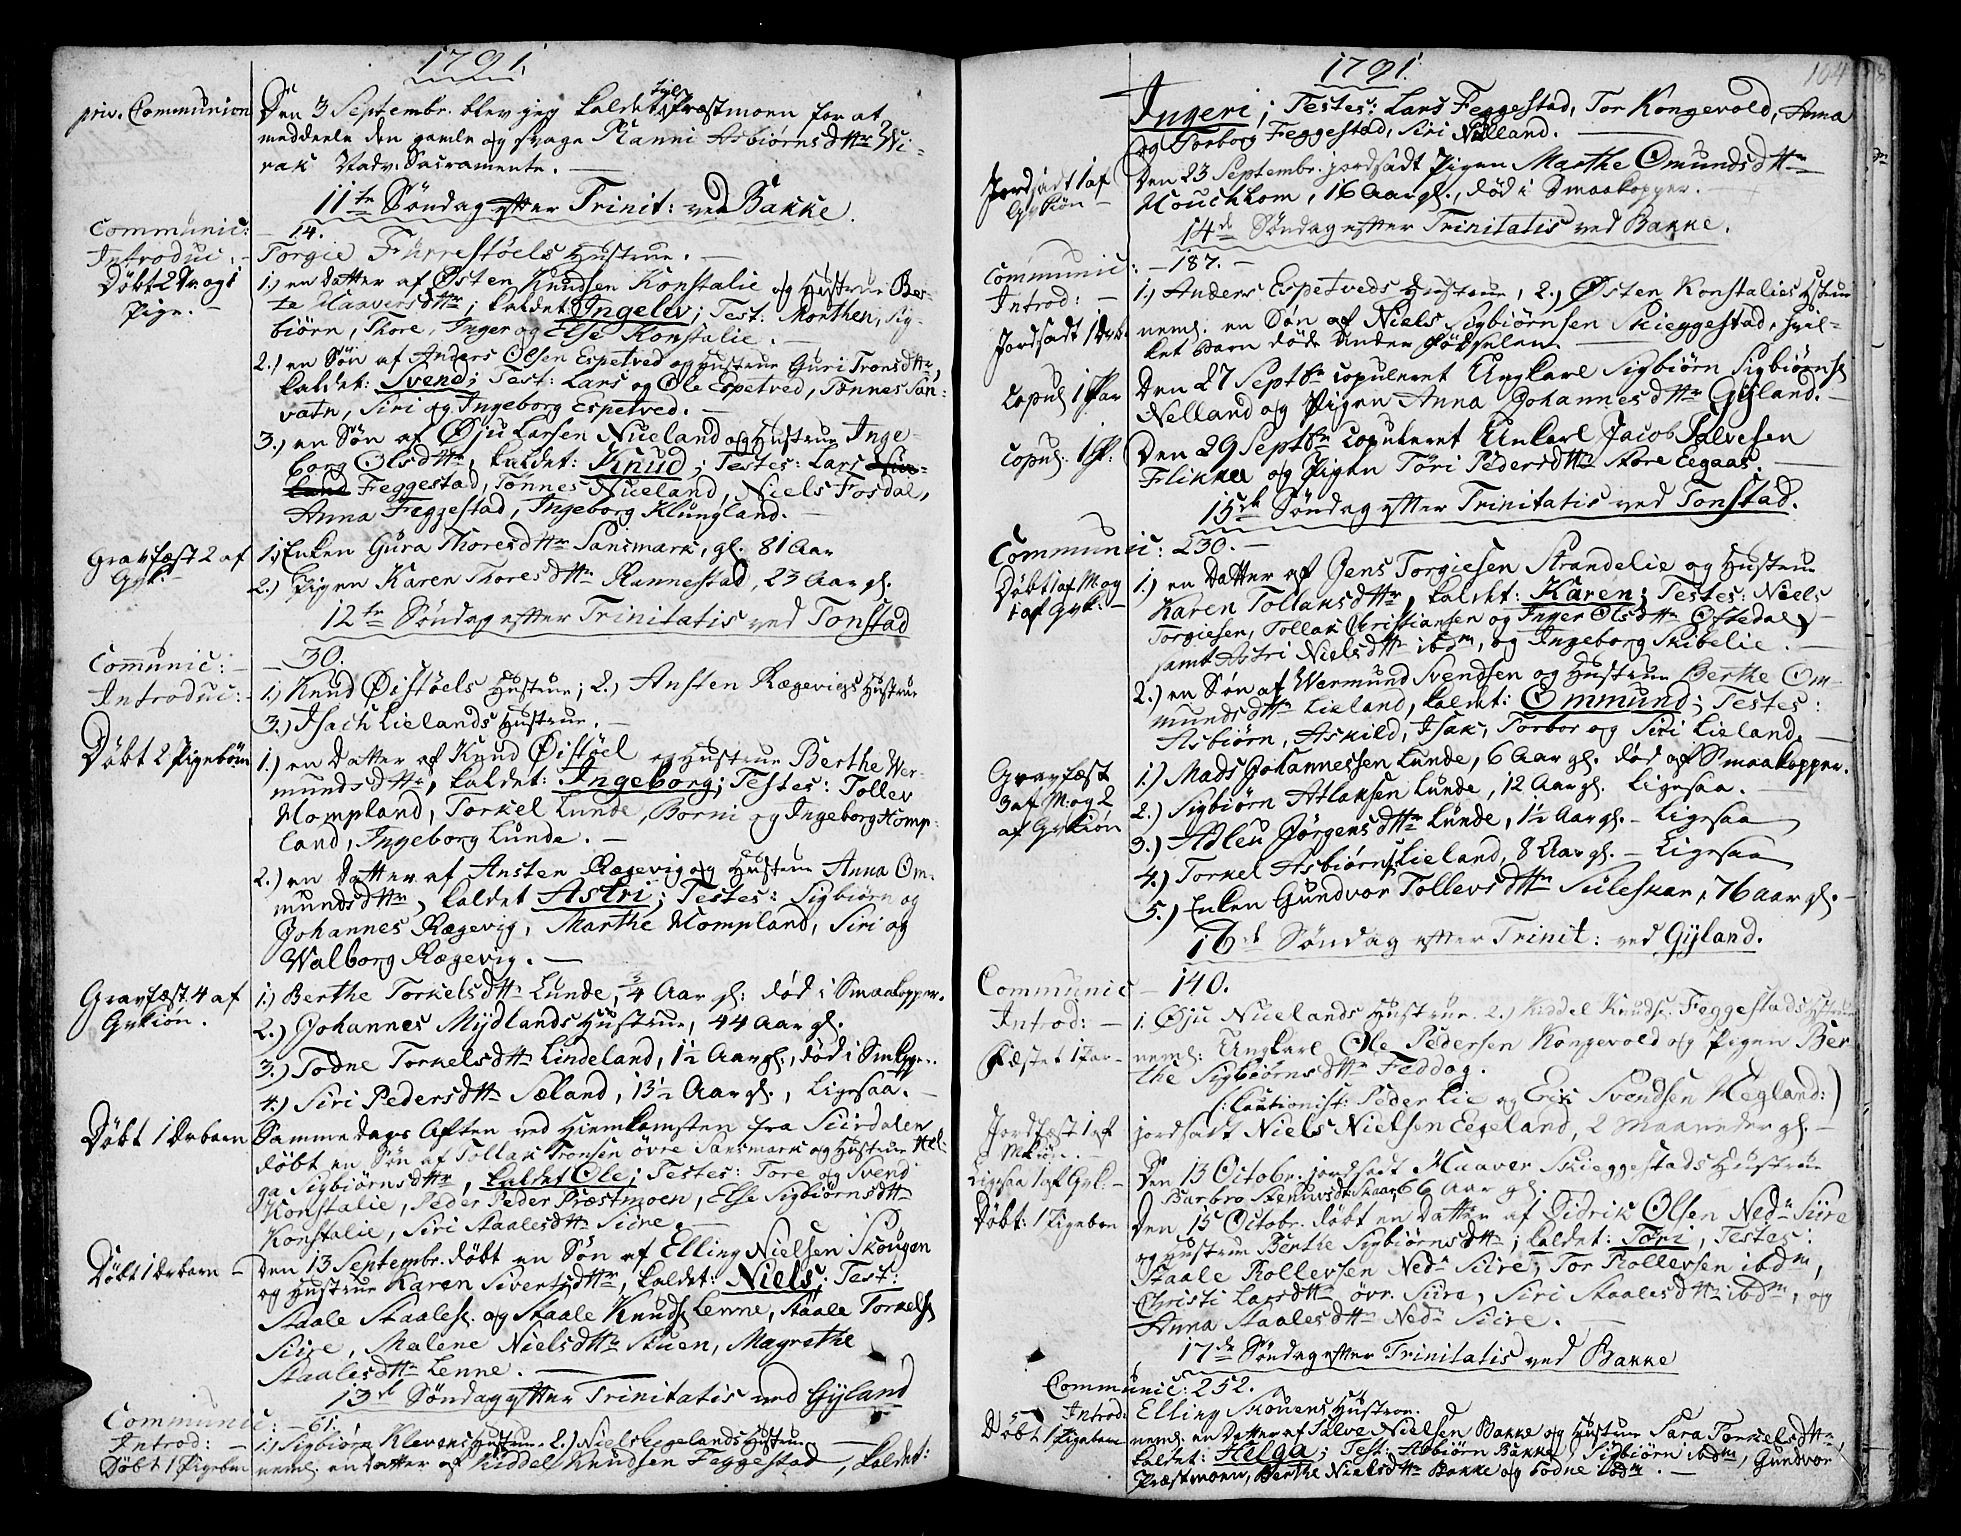 1791.
priv. Communion Den 3 Septembr. blev jeg kaldet til Præstmoen for at
meddeele den gamle og svage Ranni Asbiørnsdttr Wi-
rak Nadv. Sacramente. —
11te Søndag efter Trinit: ved Bakke.
Communic: — 14.
Introduc: — Torgie Fürrestöels Hustrue. —
Døbt 2 Dr. og 1 1.) en Datter af Østen Knudsen Konstalie og Hustrue Ber-
Pige. — te Haaversdttr; kaldet: Ingelev; Test: Morthen, Sig-
biørn, Thore, Inger og Else Konstalie. —
2.) en Søn af Anders Olsen Espetved og Hustrue Guri Tronsdttr,
kaldet: Svend; Test: Lars og Ole Espetved, Tønnes San-
vatn, Siri og Ingeborg Espetved. —
3.) en Søn af Øju Larsen Nueland og Hustrue Inge-
borg Olsdttr, kaldet: Knud; Testes: Lars
Feggestad, Tønnes Nueland, Niels Fosdal,
Anna Feggestad, Ingeborg Klungland. —
Gravfæst 2 af 1.) Enken Gura Thoresdttr Sansmark, gl. 81 Aar
Gvk: — 2.) Pigen Karen Thoresdttr Rannestad, 23 Aar gl.
12te Søndag efter Trinitatis ved Tonstad
Comunic: — — 30.
Introduc: — 1.) Knud Øistøels Hustrue; 2.) Ansten Rægevigs Hustrue
3.) Isach Lielands Hustrue. —
Døbt 2 Pigebørn 1.) en Datter af Knud Øistøel og Hustrue Berthe Wer-
mundsdttr, kaldet: Ingeborg; Testes: Tollev
Hompland, Torkel Lunde, Borni og Ingeborg Homp-
land, Ingeborg Lunde. —
2.) en Datter af Ansten Rægevig og Hustrue Anna Om-
mundsdttr, kaldet Astri; Testes: Sigbiørn og
Johannes Rægevig, Marthe Hompland, Siri og
Walborg Rægevig. —
Gravfæst. 4 af 1.) Berthe Torkelsdttr Lunde, 3/4 Aar gl: død i Smaakopper.
Gvkiøn. 2.) Johannes Mydlands Hustrue, 44 Aar gl.
3.) Todne Torkelsdttr Lindeland, 1½ Aar gl., død i Smkpr.
4.) Siri Pedersdttr Sæland, 13½ Aar gl., Ligesaa. —
Døbt 1 Drbarn Samme dags Aften ved Hiemkomsten fra Siirdalen
døbt en Søn af Tollak Tronsen övre Sansmark og Hustrue Hel-
ga Sigbiørnsdttr, kaldet Ole; Testes: Tore og Svend
Konstalie, Peder Præstmoen, Else Sigbiørnsdttr
Konstalie, Siri Staalesdttr Siire. —
Døbt 1 Drbarn — Den 13 Septembr. døbt en Søn af Elling Nielsen Skougen
og Hustrue Karen Sivertsdttr, kaldet: Niels; Test:
Staale Staales. og Staale Knuds. Lenne, Staale Torkels.
Siire, Malene Nielsdttr Stuen, Magrethe
Staalesdttr Lenne. —
13de Søndag efter Trinitatis ved Gyland
Communic: — 61.
Introd: — 1.) Sigbiørn Klevens Hustrue. 2.) Niels Eegelands Hustrue
Døbt 1 Pigebarn neml. en Datter af Kiddel Knudsen Feggestad, kaldet:
1791.
104
Ingeri; Testes: Lars Feggestad, Tor Kongevold, Anna
og Torborg Feggestad, Siri Nelland. —
Jordsadt 1 af Den 23 Septembr. jordsadt Pigen Marthe Omundsdttr
Gvkiøn — Mouchhom, 16 Aar gl., død i Smaakopper. —
14de Søndag efter Trinitatis ved Bakke.
Communic: — 187. —
Introd: — 1.) Anders Espetveds Hustrue, 2.) Østen Konstalies Hstrue
Jordsadt 1 Drb. neml. en Søn af Niels Sigbiørnsen Skieggestad, hvil-
ket Barn døde under Fødselen —
Copul. 1 Par Den 27 Septbr copuleret Ungkarl Sigbiørn Sigbiørns.
Nelland og Pigen Anna Johannesdttr Gyland. —
Copul. 1 P: Den 29 Septbr copuleret Unkarl Jacob Salvesen
Flikke og Pigen Töri Pedersdttr Store Eegaas. —
15de Søndag efter Trinitatis ved Tonstad.
Communic: 230. —
Døbt 1 af M: og 1.) en Datter af Jens Torgiesen Strandelie og Hustrue
1 af Gvk: — Karen Tollaksdttr, kaldet: Karen; Testes: Niels
Torgiesen, Tollak Christiansen og Inger Olsdttr Oftedal,
samt Astri Nielsdttr ibdm, og Ingeborg Skibelie. —
2.) en Søn af Wermund Svendsen og Hustrue Berthe Om-
mundsdttr Lieland, kaldet: Ommund; Testes:
Asbiørn, Askild, Isak, Torbor og Siri Lieland. —
Gravfæst 1.) Mads Johannessen Lunde, 6 Aar gl. død af Smaakopper.
3 af M: og 2 2.) Sigbiørn Atlaksen Lunde, 12 Aar gl. Ligesaa. —
af Gvkiøn 3.) Adleu Jörgensdttr Lunde, 1½ Aar gl. — Ligesaa
4.) Torkel Asbiørns. Lieland, 8 Aar gl. — Ligesaa
5.) Enken Gundvor Tollevsdttr Suleskar, 76 Aar gl. —
16de Søndag efter Trinit: ved Gyland.
Communic — 140.
Introd: — 1. Øju Nuelands Hustrue. 2.) Kiddel Knuds. Feggestads Hstrue
Fæstet 1 Par — neml: Ungkarl Ole Pedersen Kongevold og Pigen Ber-
the Sigbiørnsdttr Feddog.
(: Cautionist: Peder Lie og Eric Svendsen Hegland:)
Jordfæst 1 af jordsadt Niels Nielsen Eegeland, 2 Maaneder gl. —
Mkiøn. —
Ligesaa 1 af Gvk: — Den 13 Octobr. jordsadt Haaver Skieggestads Hustrue
Barbro Stenursdt. Skaar, 66 Aar gl.
Døbt: 1 Pigebarn Den 15 Octobr. döbt en Datter af Didrik Olsen Nedr Siire
og Hustrue Berthe Sigbiørnsdttr; kaldet: Töri, Testes:
Staale Rollevsen Nedr Siire, Tor Rollevsen ibdm,
Christi Larsdttr övr. Siire, Siri Staalesdttr ibdm, og
Anna Staalesdttr Nedr Siire. —
17de Søndag efter Trinitatis ved Bakke
Communic: 252.
Introd: Elling Skouens Hustrue.
Døbt 1 Pigebarn neml. en Datter af Salve Nielsen Bakke og Hustrue Sara Torkelsdttr,
kaldet: Helga; Test: Asbiørn Bakke, Sigbiørn ibdm, Gundvor
Præstmoen, Berthe Nielsdttr Bakke og Todne ibdm. —